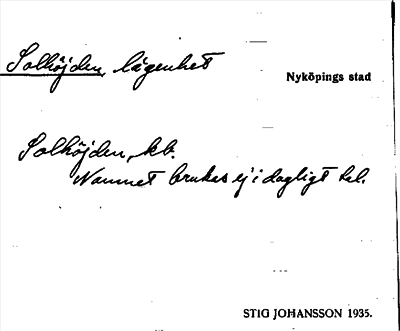 Solhöjden, lägenhet
Nyköpings stad
Solhöjden, kb.
Namnet brukas ej i dagligt tal.
STIG JOHANSSON 1935.